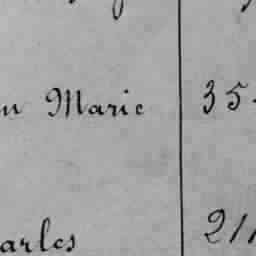 n Marie 35
arles 211